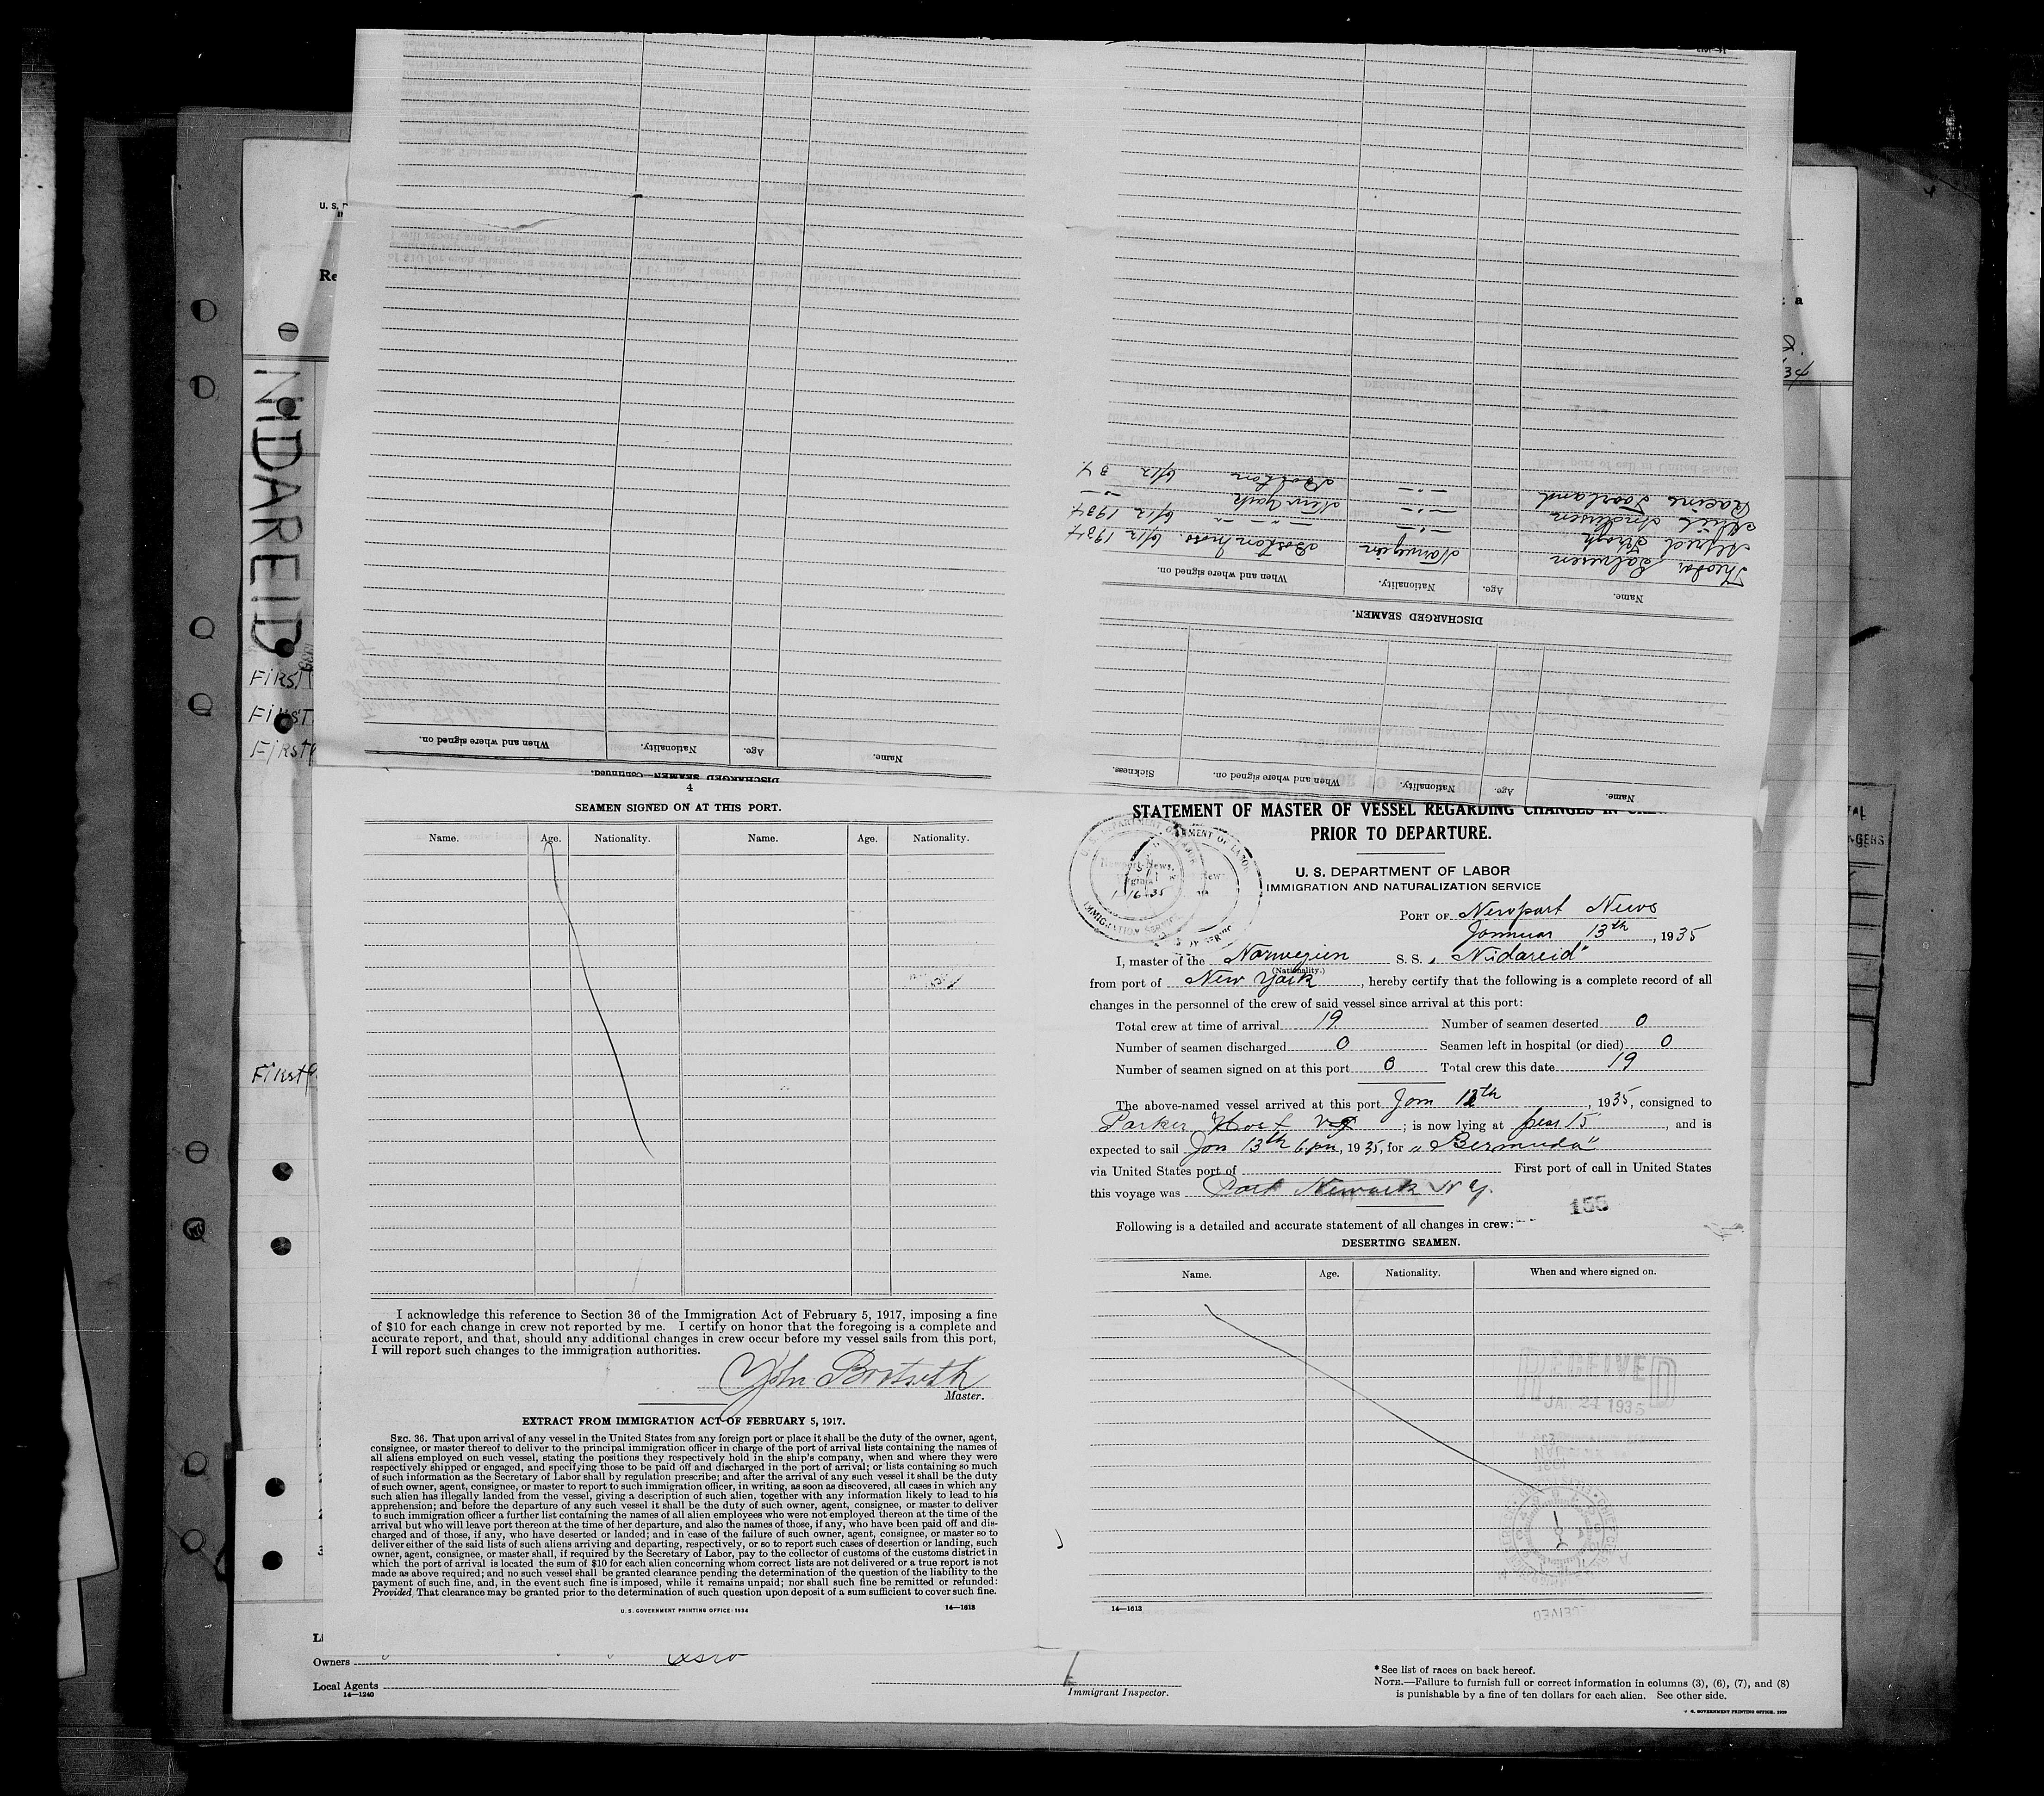 NIDAREID
DISCHARGED SEAMEN.
Name. Age. Nationality. When and where signed on.
Norwegian Boston Mass. 6/12 1934
Alfred
New York
Boston 6/12 34
Name. Age. Nationality. When and where signed on. Sickness.
DISCHARGED SEAMEN—Continued.
Name. Age. Nationality. When and where signed on.
4
SEAMEN SIGNED ON AT THIS PORT.
Name. Age. Nationality. Name. Age. Nationality.
I acknowledge this reference to Section 36 of the Immigration Act of February 5, 1917, imposing a fine
of $10 for each change in crew not reported by me. I certify on honor that the foregoing is a complete and
accurate report, and that, should any additional changes in crew occur before my vessel sails from this port,
I will report such changes to the immigration authorities.
John Brotseth
Master.
EXTRACT FROM IMMIGRATION ACT OF FEBRUARY 5, 1917.
SEC. 36. That upon arrival of any vessel in the United States from any foreign port or place it shall be the duty of the owner, agent,
consignee, or master thereof to deliver to the principal immigration officer in charge of the port of arrival lists containing the names of
all aliens employed on such vessel, stating the positions they respectively hold in the ship's company, when and where they were
respectively shipped or engaged, and specifying those to be paid off and discharged in the port of arrival; or lists containing so much
of such information as the Secretary of Labor shall by regulation prescribe; and after the arrival of any such vessel it shall be the duty
of such owner, agent, consignee, or master to report to such immigration officer, in writing, as soon as discovered, all cases in which any
such alien has illegally landed from the vessel, giving a description of such alien, together with any information likely to lead to his
apprehension; and before the departure of any such vessel it shall be the duty of such owner, agent, consignee, or master to deliver
to such immigration officer a further list containing the names of all alien employees who were not employed thereon at the time of the
arrival but who will leave port thereon at the time of her departure, and also the names of those, if any, who have been paid off and dis-
charged and of those, if any, who have deserted or landed; and in case of the failure of such owner, agent, consignee, or master so to
deliver either of the said lists of such aliens arriving and departing, respectively, or so to report such cases of desertion or landing, such
owner, agent, consignee, or master shall, if required by the Secretary of Labor, pay to the collector of customs of the customs district in
which the port of arrival is located the sum of $10 for each alien concerning whom correct lists are not delivered or a true report is not
made as above required; and no such vessel shall be granted clearance pending the determination of the question of the liability to the
payment of such fine, and, in the event such fine is imposed, while it remains unpaid; nor shall such fine be remitted or refunded:
Provided, That clearance may be granted prior to the determination of such question upon deposit of a sum sufficient to cover such fine.
U. S. GOVERNMENT PRINTING OFFICE: 1934 14—1613
STATEMENT OF MASTER OF VESSEL REGARDING CHANGES IN CREW
PRIOR TO DEPARTURE.
U. S. DEPARTMENT OF LABOR
IMMIGRATION AND NATURALIZATION SERVICE
PORT OF Newport News
Januar 13th, 1935
I, master of the Norwegian S. S. „Nidareid"
(Nationality.)
from port of New York, hereby certify that the following is a complete record of all
changes in the personnel of the crew of said vessel since arrival at this port:
Total crew at time of arrival 19 Number of seamen deserted 0
Number of seamen discharged 0 Seamen left in hospital (or died) 0
Number of seamen signed on at this port 0 Total crew this date 19
The above-named vessel arrived at this port Jan 12th, 1935, consigned to
Parker Host; is now lying at pear 15, and is
expected to sail Jan 13th 6 pm, 1935, for „Bermuda"
via United States port of First port of call in United States
this voyage was Port Newark N Y.
155
Following is a detailed and accurate statement of all changes in crew:
DESERTING SEAMEN.
Name. Age. Nationality. When and where signed on.
RECEIVED
JAN 24 1935
14—1613
Owners
Local Agents
14—1240
Immigrant Inspector.
*See list of races on back hereof.
NOTE.—Failure to furnish full or correct information in columns (3), (6), (7), and (8)
is punishable by a fine of ten dollars for each alien. See other side.